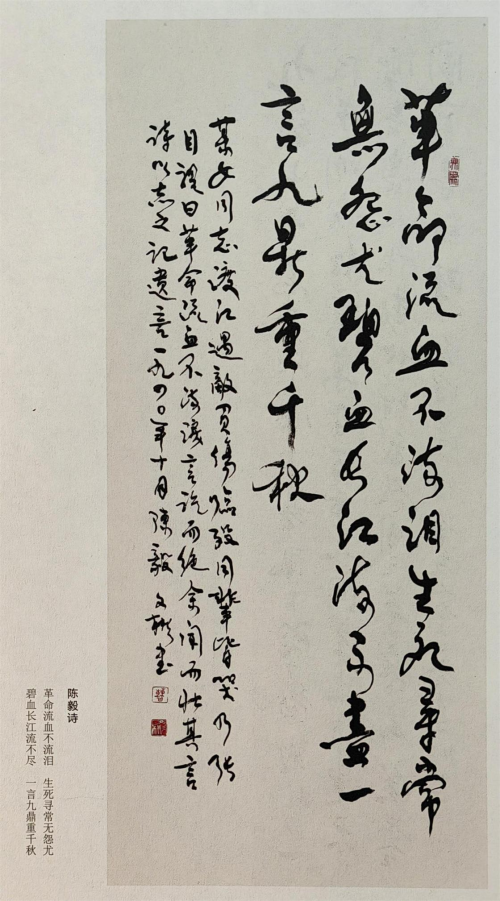 革命流血不流泪生死尋常
無怨尤碧血长江流不盡一
言九鼎重千秋
某女同志渡江遇敵負傷臨殁同輩皆哭乃张
目曰革命流血不流淚言訖而絕余闻而壮其言
詩以志之记遺言一九四〇年十月陳毅 文書
陈毅诗
革命流血不流泪 生死寻常无怨尤
碧血长江流不尽 一言九鼎重千秋